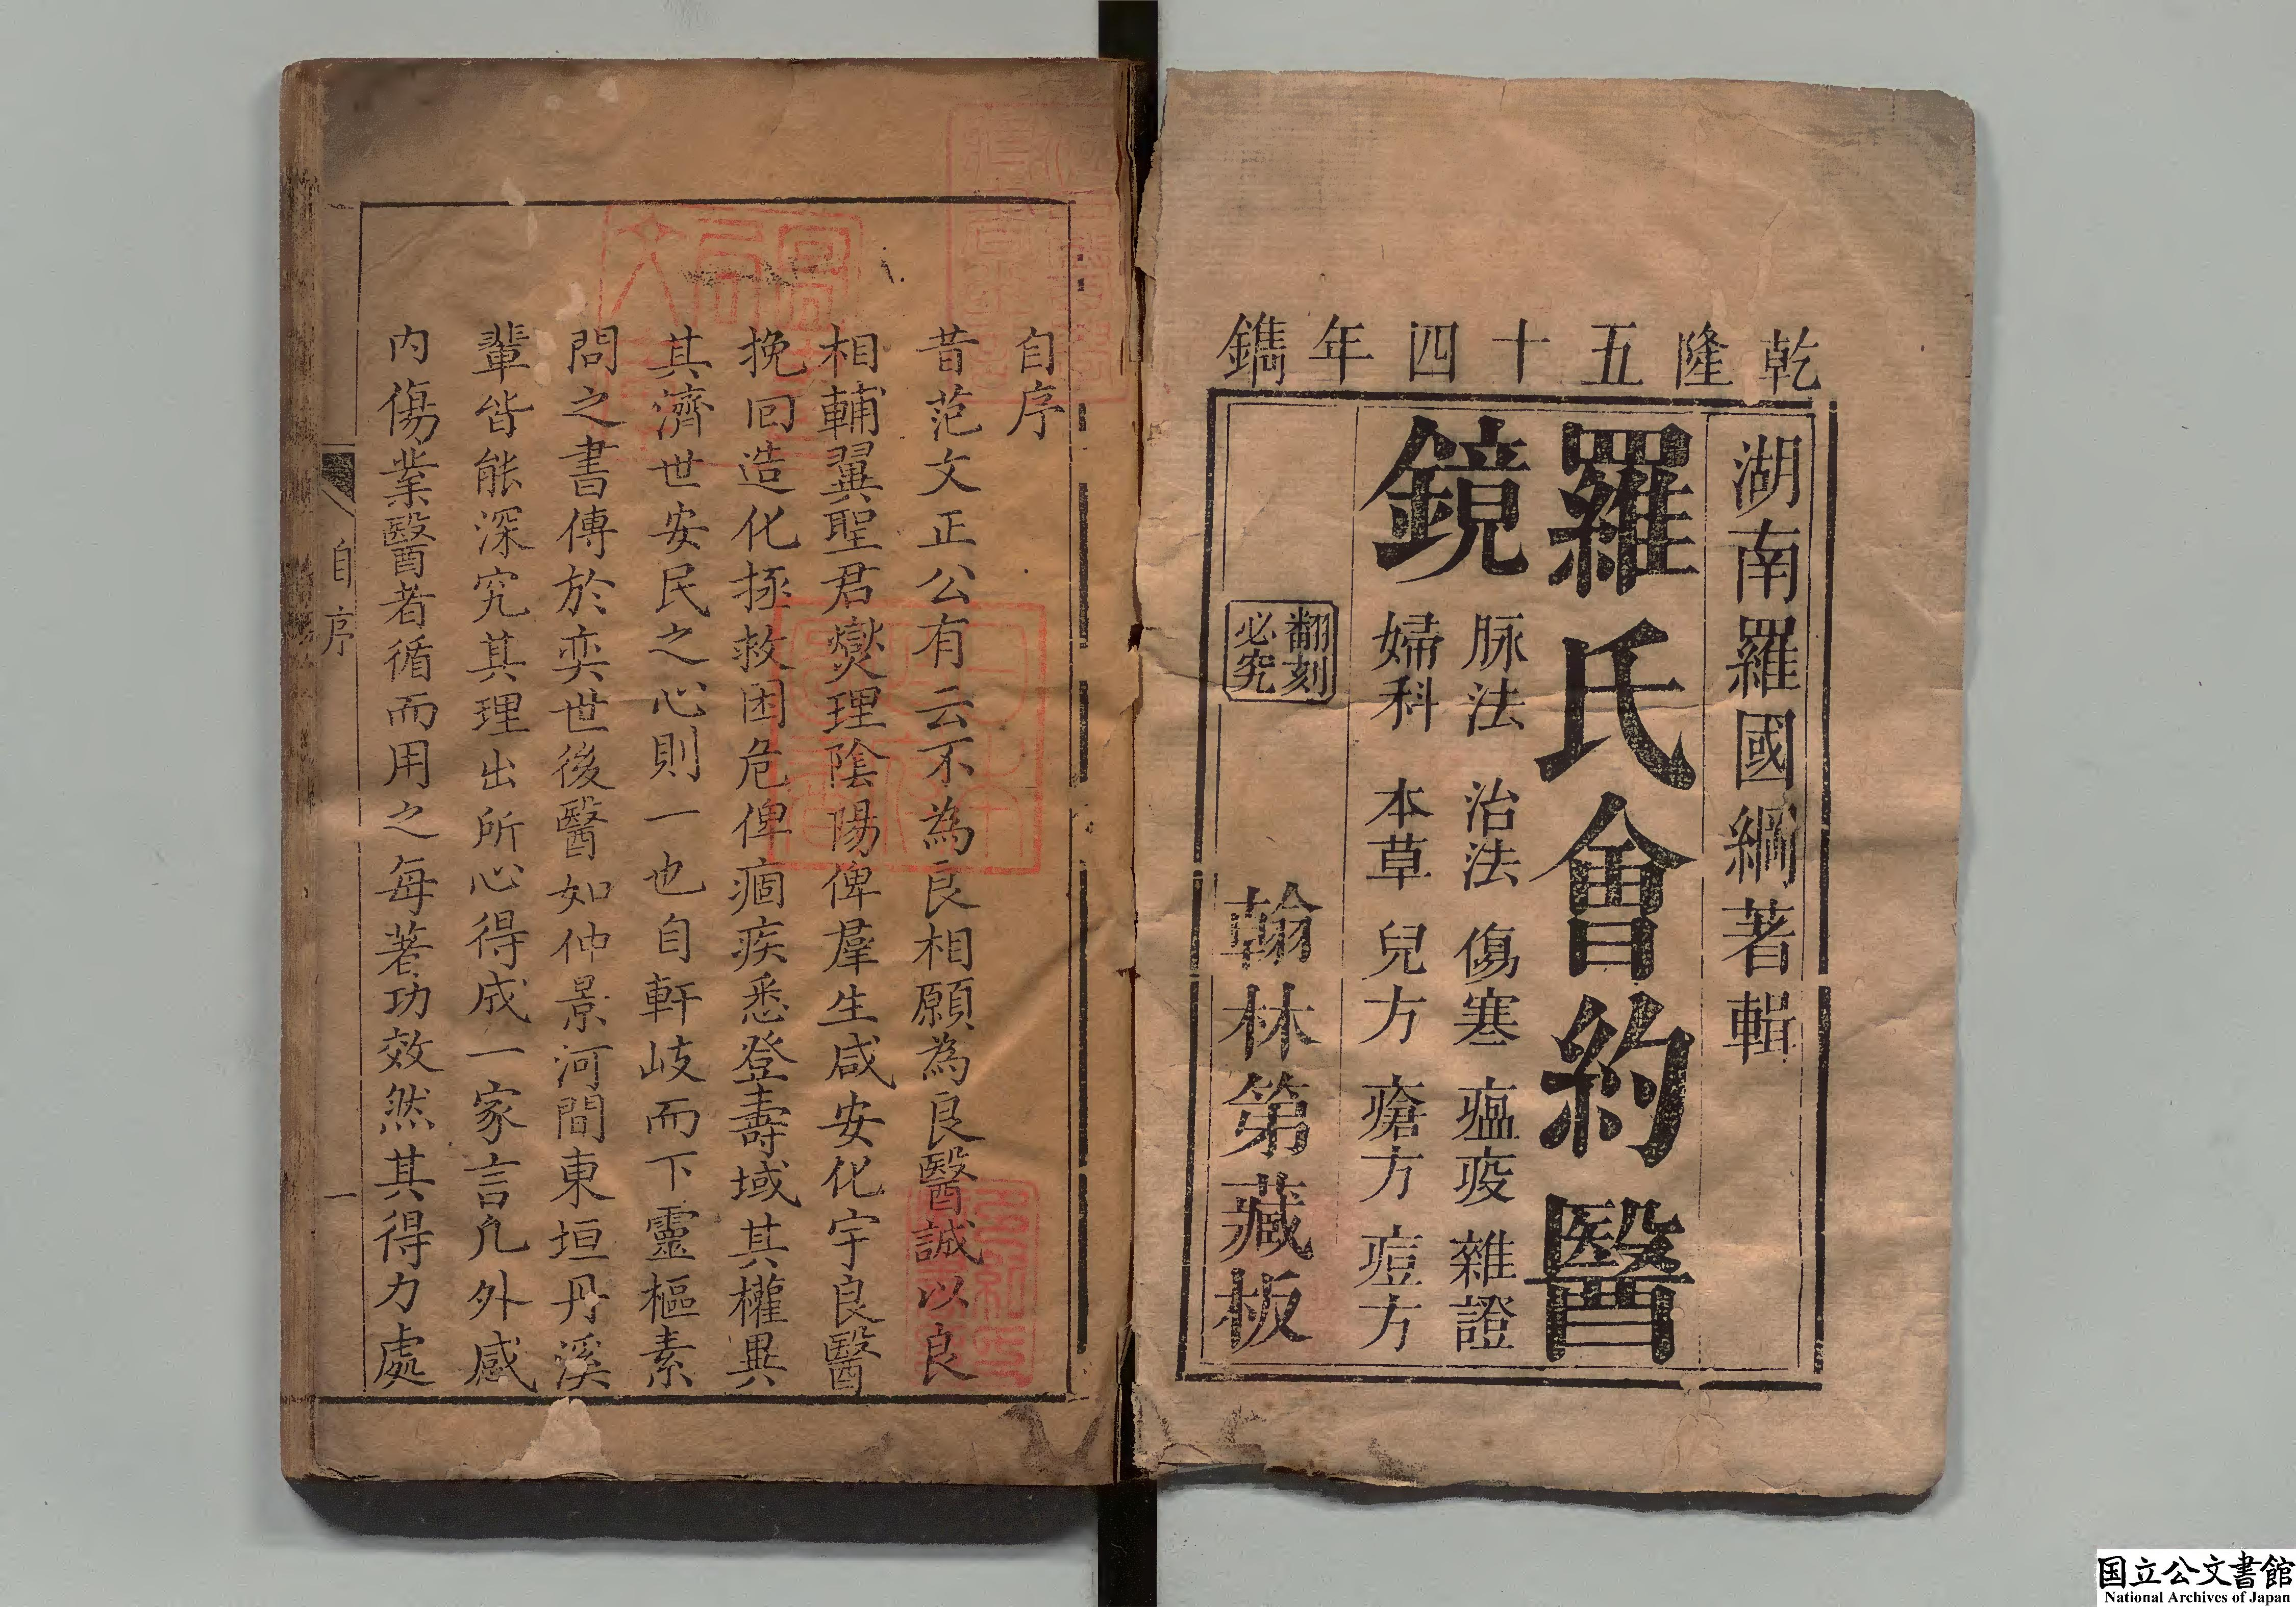 乾隆五十四年鐫
湖南羅國綱著輯
羅氏會約醫
鏡
脉法 治法 傷寒 瘟疫 雜證
婦科 本草 兒方 瘡方 痘方
翻刻
必究
翰林第藏板
自序
昔范文正公有云不為良相願為良醫誠以良
相輔翼聖君燮理陰陽俾羣生咸安化宇良醫
挽回造化拯救困危俾痼疾悉登壽域其權異
其濟世安民之心則一也自軒岐而下靈樞素
問之書傳於奕世後醫如仲景河間東垣丹溪
輩皆能深究其理出所心得成一家言凡外感
內傷業醫者循而用之每著功效然其得力處
自序
一
国立公文書館
National Archives of Japan